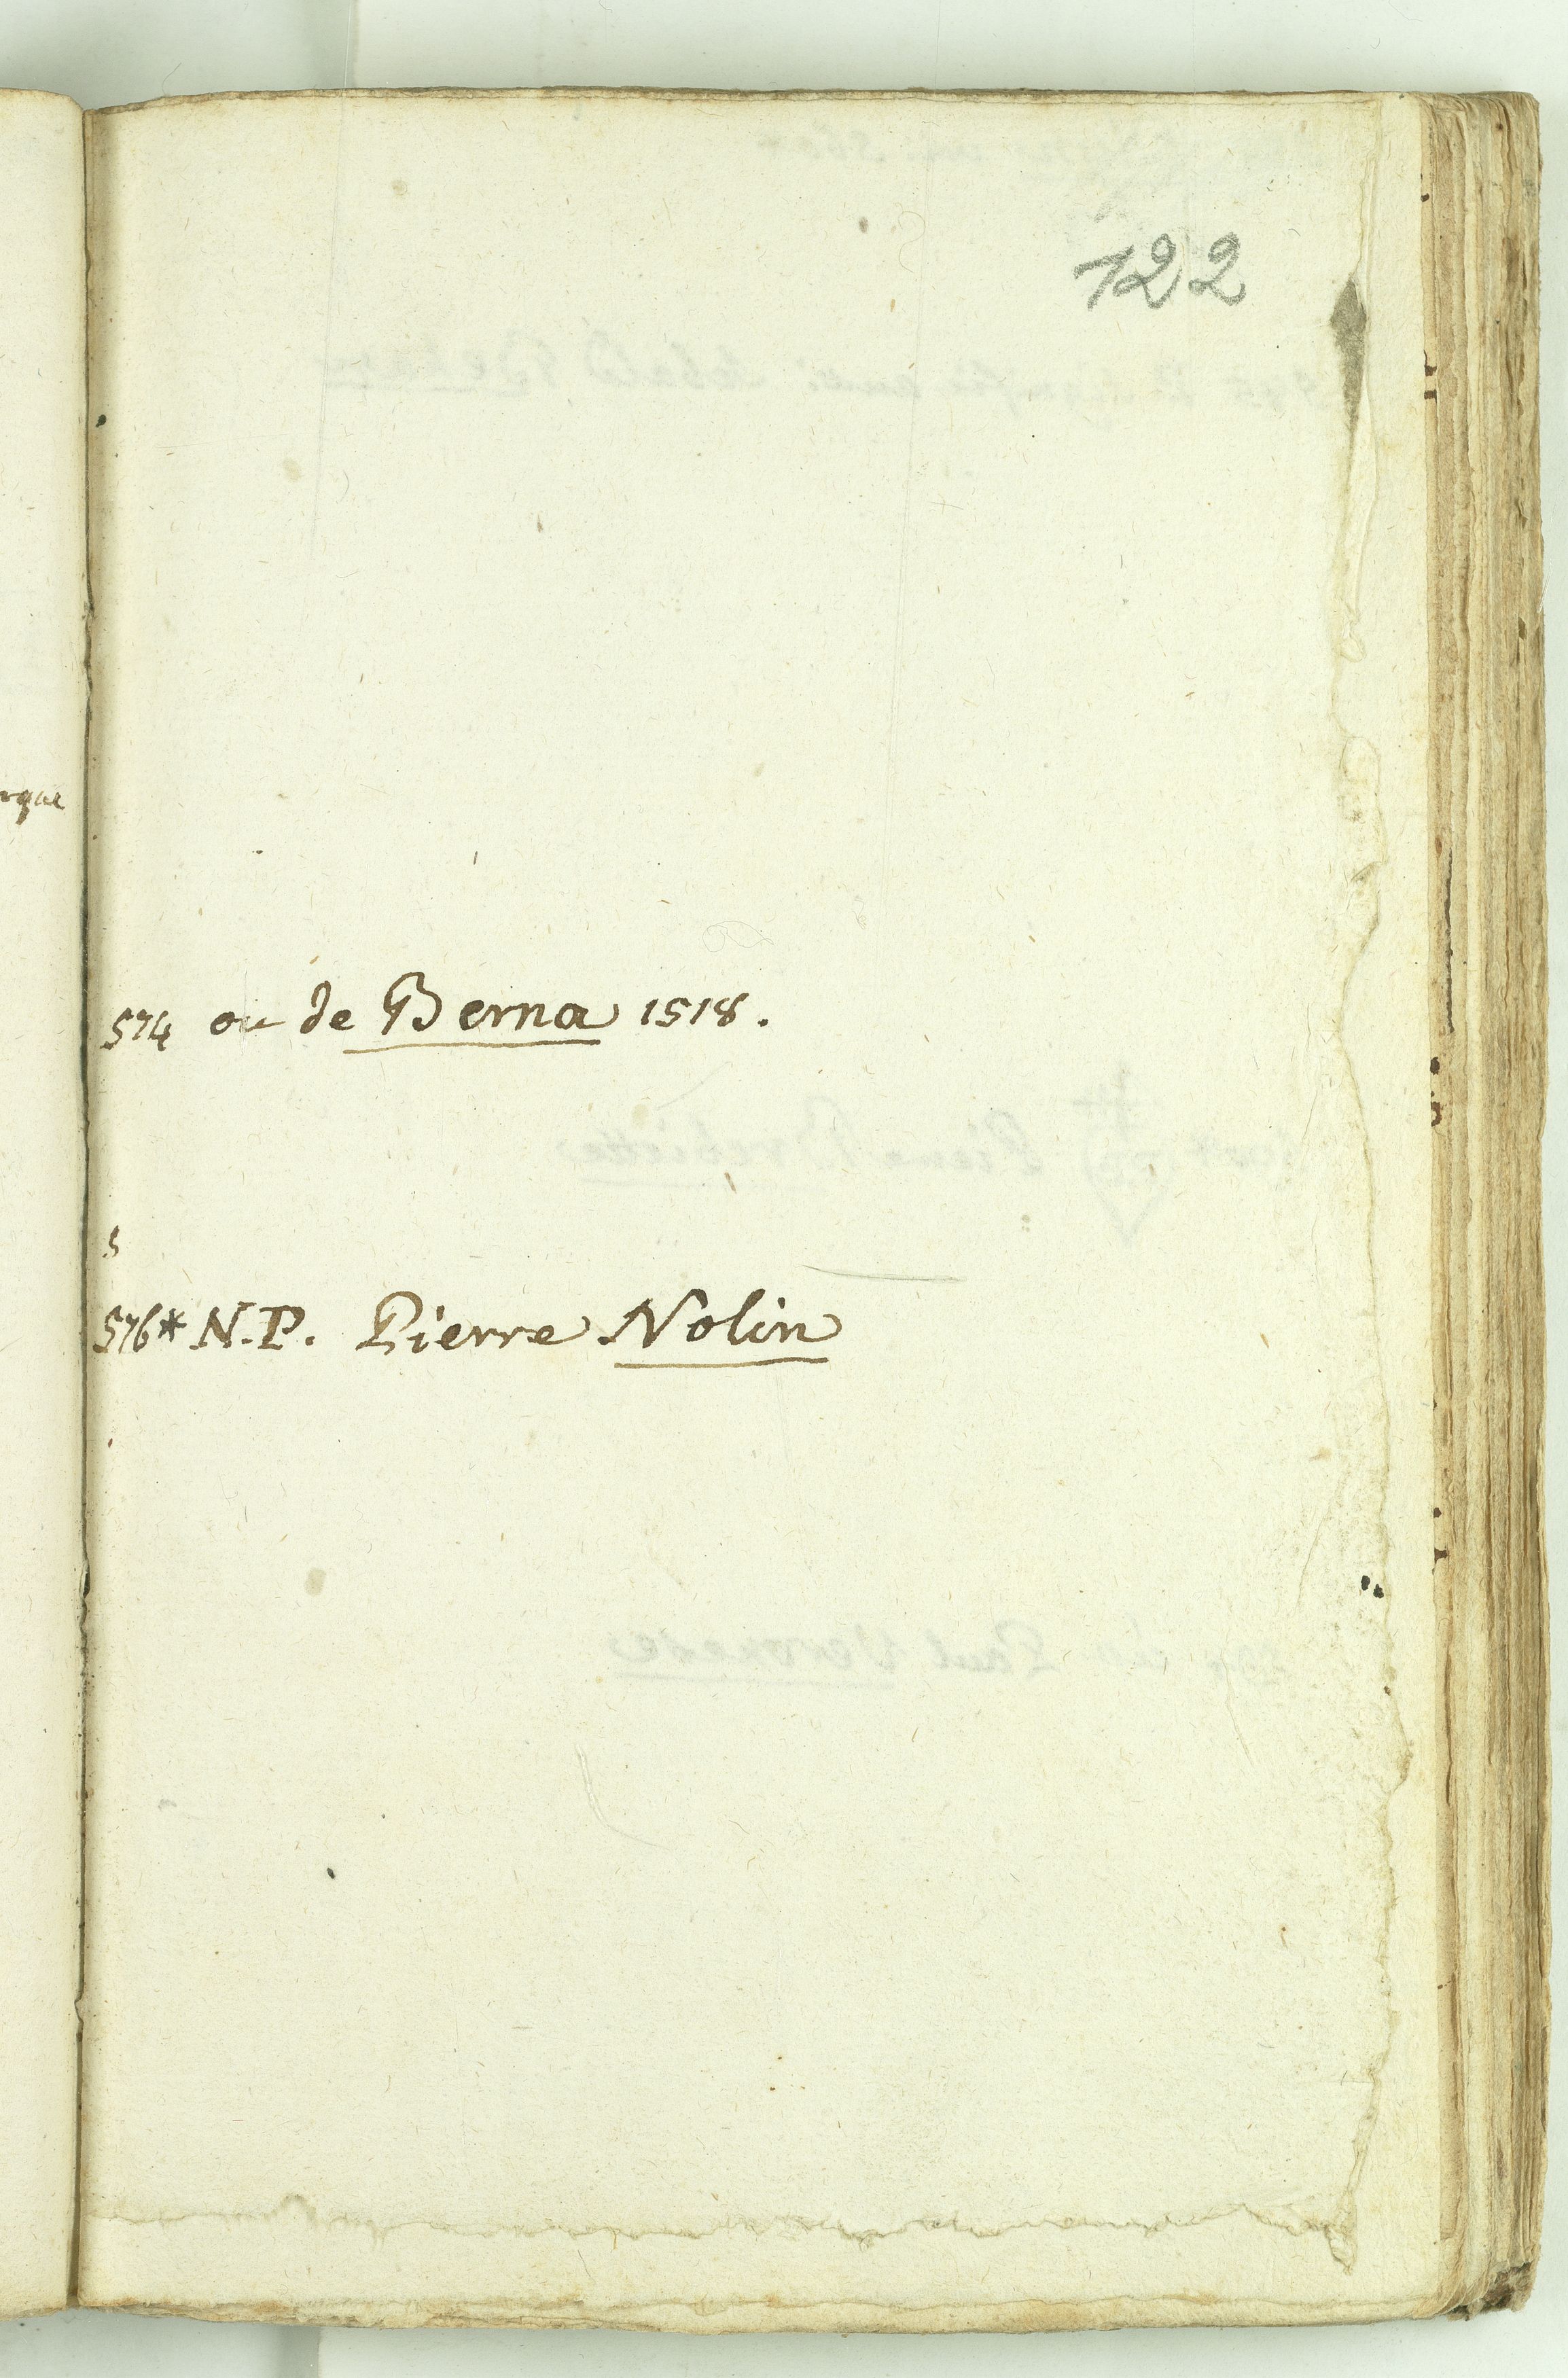 122
574 ou de Berna 1518.
s
576* N.P. Pierre Nolin